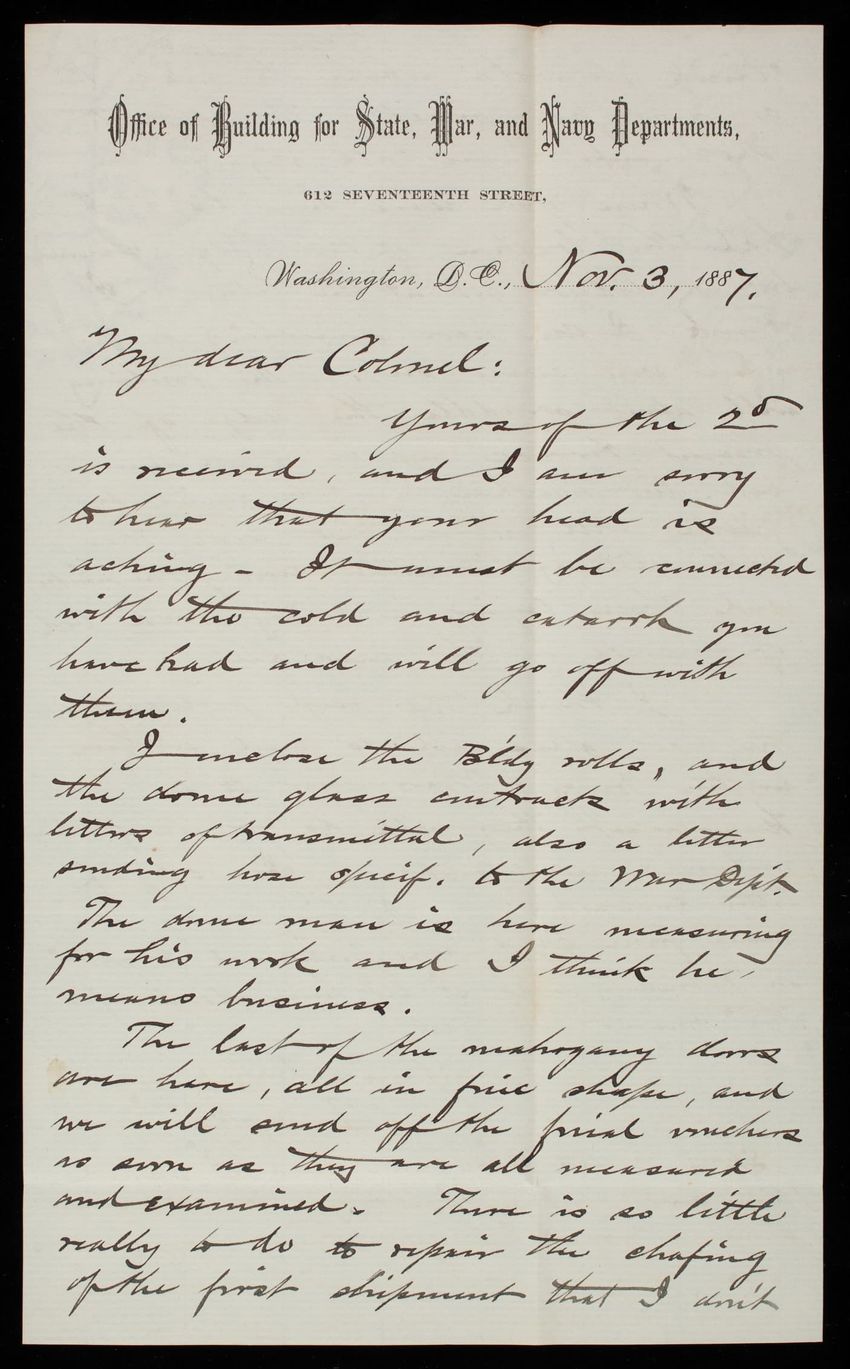 Office of Building for State, War, and Navy Departments,
612 SEVENTEENTH STREET,
Washington, D. C., Nov. 3, 1887.
My dear Colonel:
Yours of the 2d
is received, and I am sorry
to hear that your head is
aching - It must be connected
with the cold and catarrh you
have had and will go off with
them.
I enclose the B'ldg rolls, and
the dome glass contracts with
letters of transmittal, also a letter
sending hose specif. to the War Dept.
The dome man is here measuring
for his work and I think he
means business.
The last of the mahogany doors
are here, all in fine shape, and
we will send off the final vouchers
as soon as they are all measured
and examined. There is so little
really to do to repair the chafing
of the first shipment that I don't